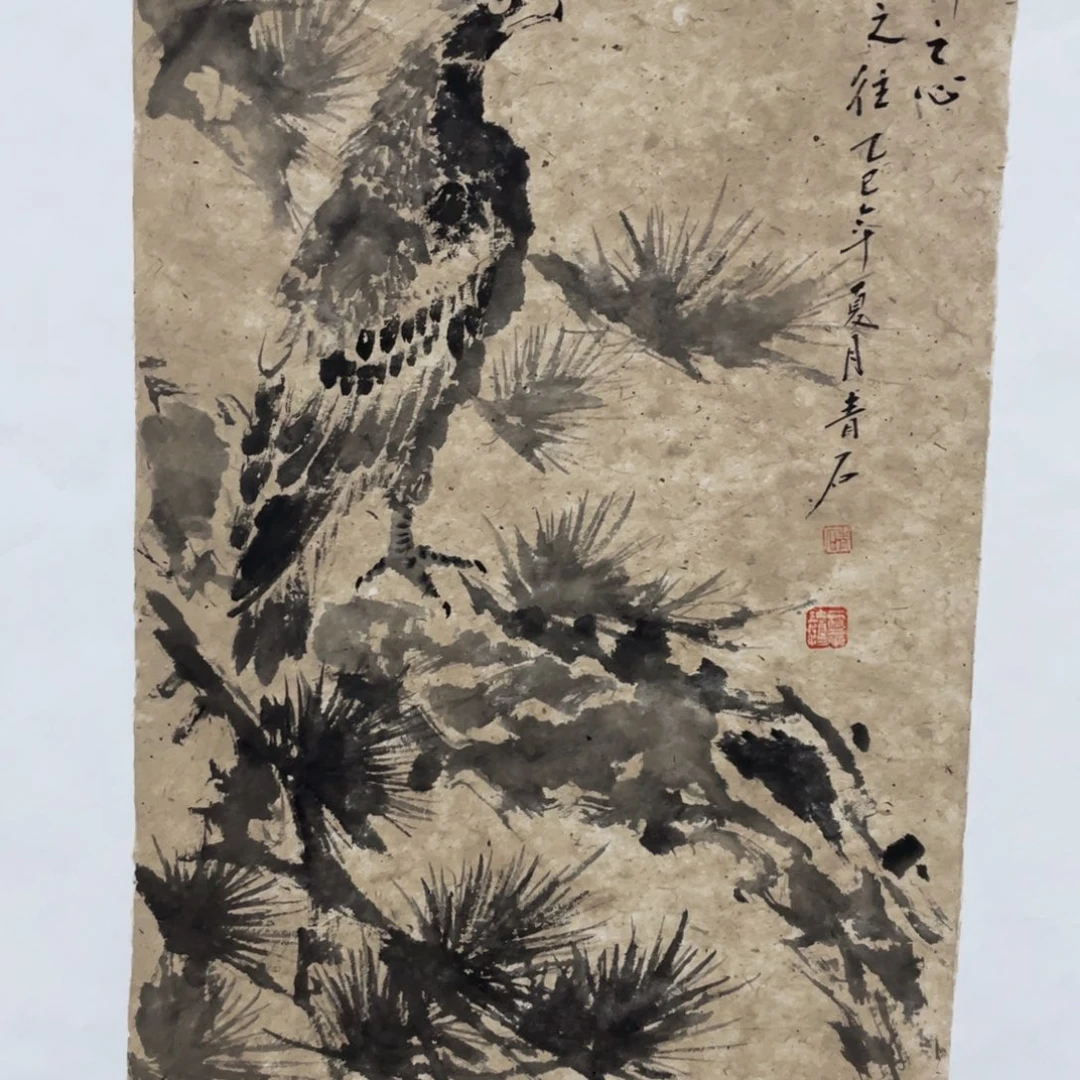 之心
之往乙巳年夏月青石